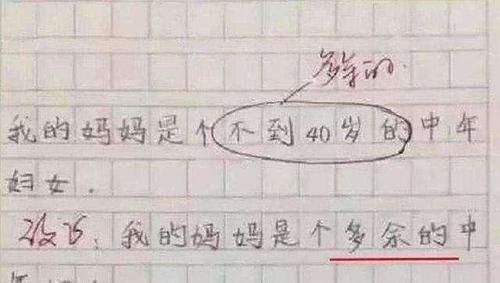 多余的.
我的妈妈是个不到40岁的中年
妇女.
改正:我的妈妈是个多余的中